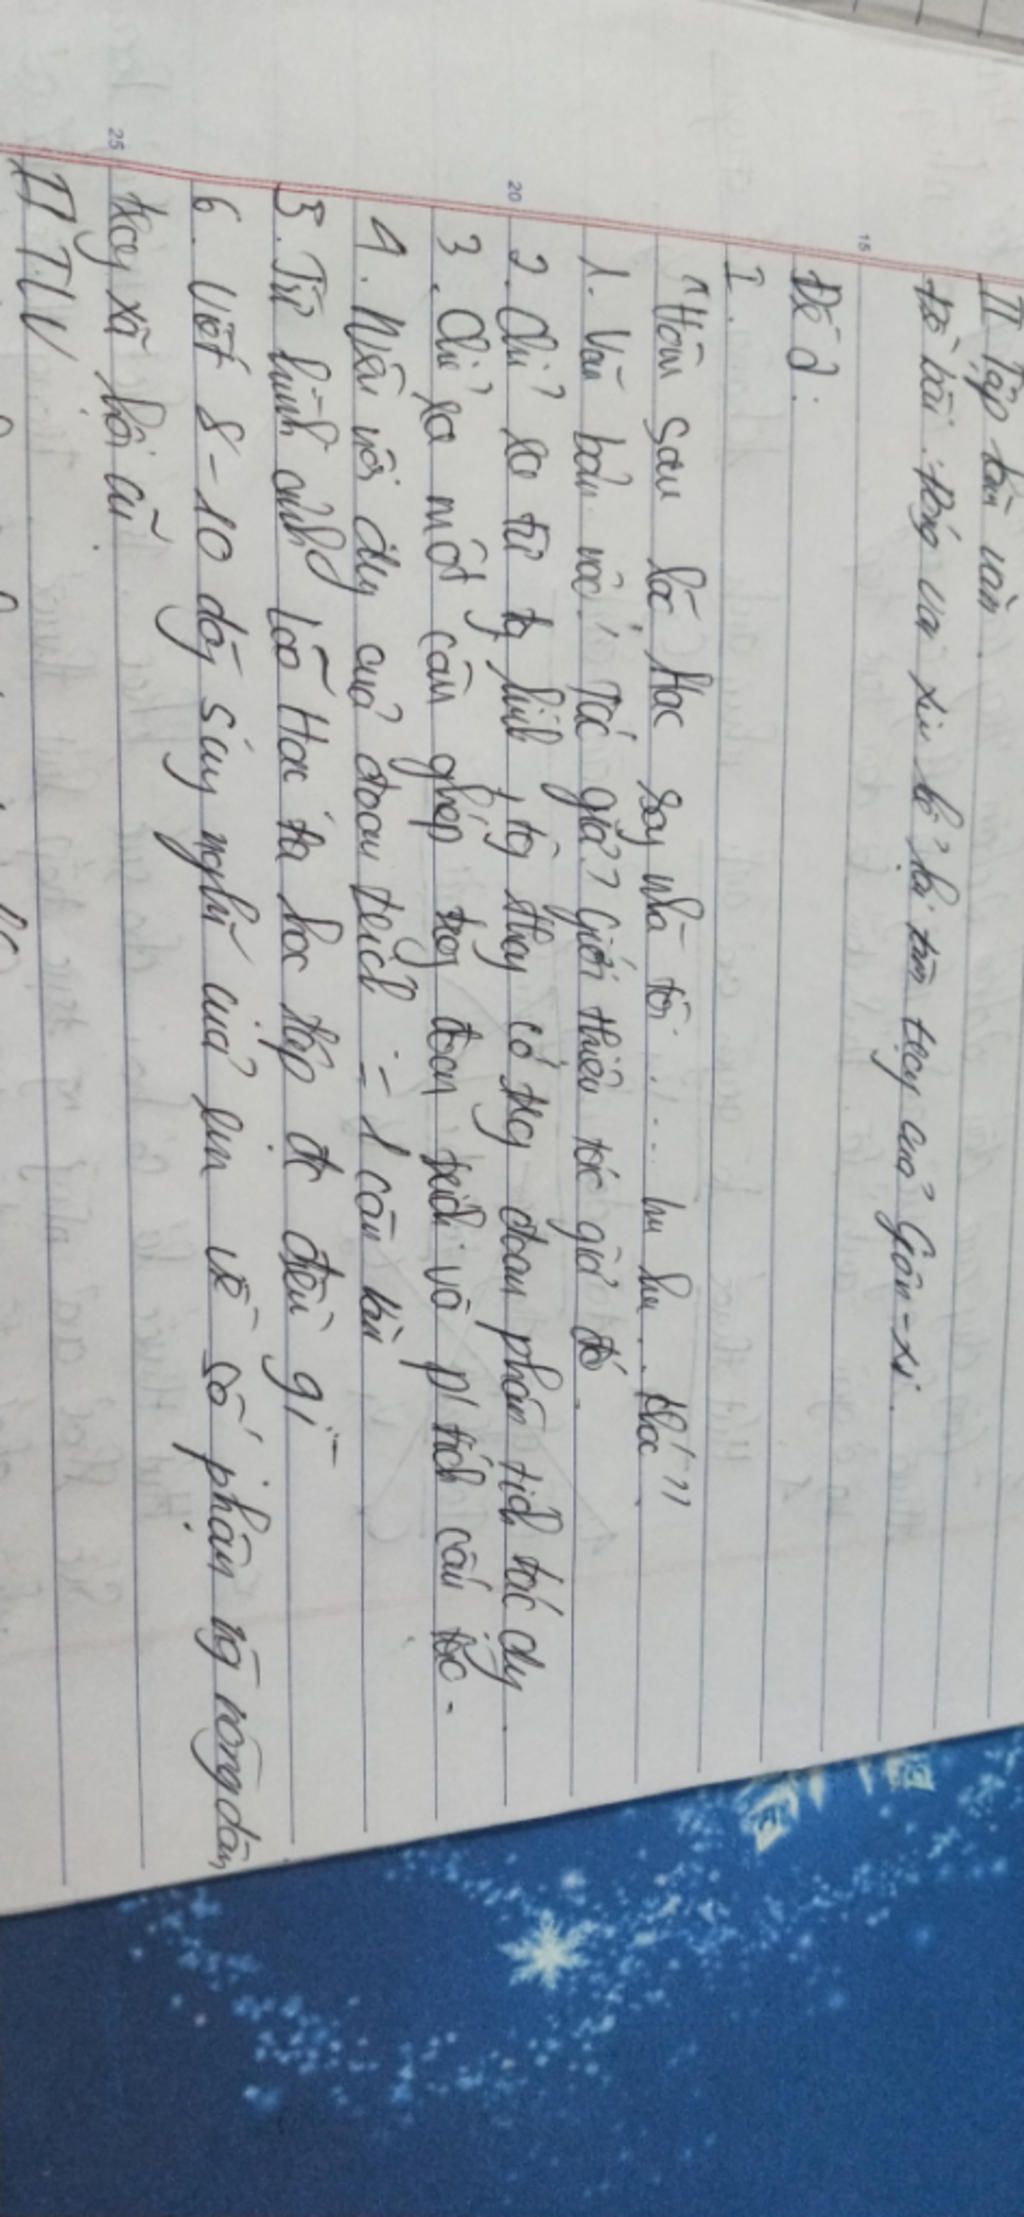 II Tập làm văn.
Đề bài: Đóng vai xiu kể lại tâm trạng của Giôn-xi.
15
Đề 2:
I.
"Hôm sau lão Hạc sang nhà tôi .... hu hu.. khóc"
1. Văn bản nào? Tác giả? Giới thiệu tác giả đó.
20
2. Chỉ ra từ tg hình, tg thanh có trg đoạn phân tích tác dụng.
3. Chỉ ra một câu ghép trg đoạn trích và p/tích cấu tạo.
4. Nêu nội dung của đoạn trích = 1 câu văn
5. Từ hình ảnh Lão Hạc ta học tập đc điều gì
6. Viết 8-10 dòg suy nghĩ của em về số phận ng nông dân
25
trong xã hội cũ.
II TLV